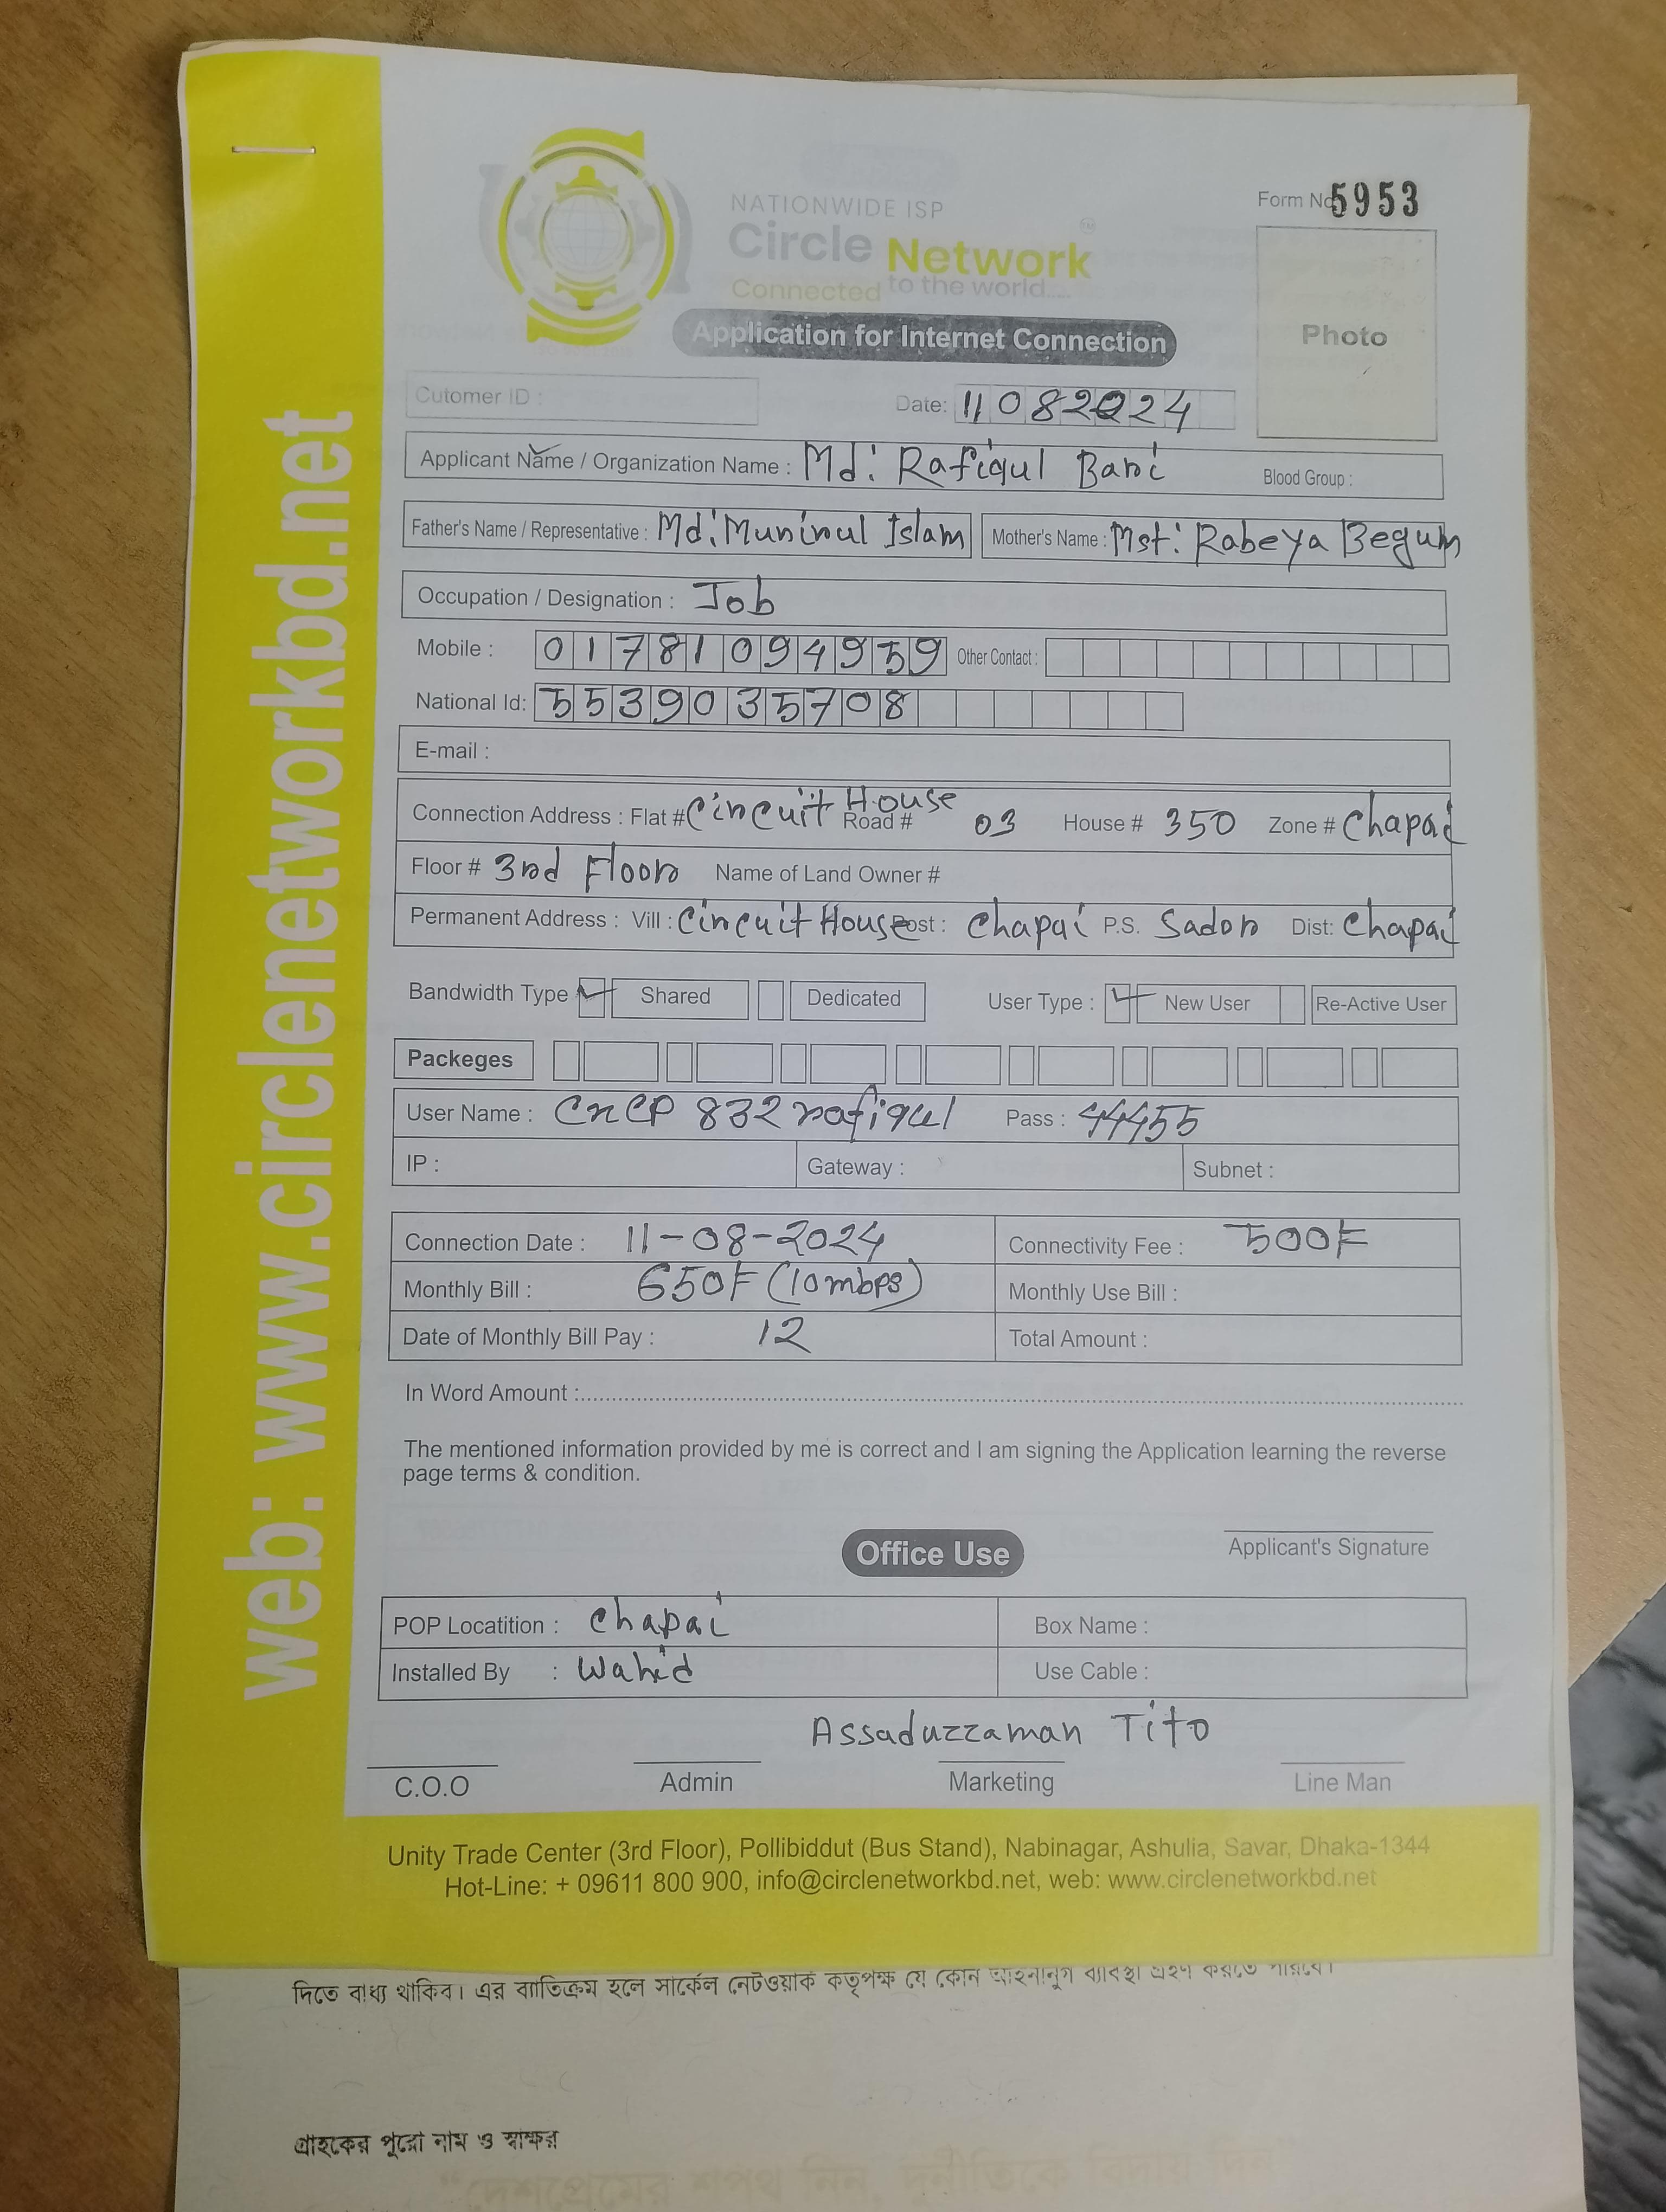 web: www.circlenetworkbd.net
NATIONWIDE ISP
Circle Network
TM
Connected to the world....
Form No 5953
Photo
Application for Internet Connection
Cutomer ID :
Date: 11 08 2024
Applicant Name / Organization Name : Md: Rafiqul Bari Blood Group :
Father's Name / Representative : Md: Munirul Islam Mother's Name : Mst: Rabeya Begum
Occupation / Designation : Job
Mobile : 01781094959 Other Contact :
National Id: 5539035708
E-mail :
Connection Address : Flat # Circuit House Road # 03 House # 350 Zone # Chapai
Floor # 3rd Floor Name of Land Owner #
Permanent Address : Vill : Circuit House Post : Chapai P.S. Sador Dist: Chapai
Bandwidth Type Shared Dedicated User Type : New User Re-Active User
Packeges
User Name : CNCP 832 rafiqul Pass : 44455
IP : Gateway : Subnet :
Connection Date : 11-08-2024 Connectivity Fee : 500৳
Monthly Bill : 650৳ (10mbps) Monthly Use Bill :
Date of Monthly Bill Pay : 12 Total Amount :
In Word Amount :
The mentioned information provided by me is correct and I am signing the Application learning the reverse
page terms & condition.
Applicant's Signature
Office Use
POP Locatition : Chapai Box Name :
Installed By : Wahid Use Cable :
Assaduzzaman Tito
C.O.O Admin Marketing Line Man
Unity Trade Center (3rd Floor), Pollibiddut (Bus Stand), Nabinagar, Ashulia, Savar, Dhaka-1344
Hot-Line: + 09611 800 900, info@circlenetworkbd.net, web: www.circlenetworkbd.net
দিতে বাধ্য থাকিব। এর ব্যাতিক্রম হলে সার্কেল নেটওয়ার্ক কতৃপক্ষ যে কোন আইনানুগ ব্যবিস্থা গ্রহণ করতে পারবে।
গ্রাহকের পুরো নাম ও স্বাক্ষর
“দেশপ্রেমের শপথ নিন, দুর্নীতিকে বিদায় দিন”